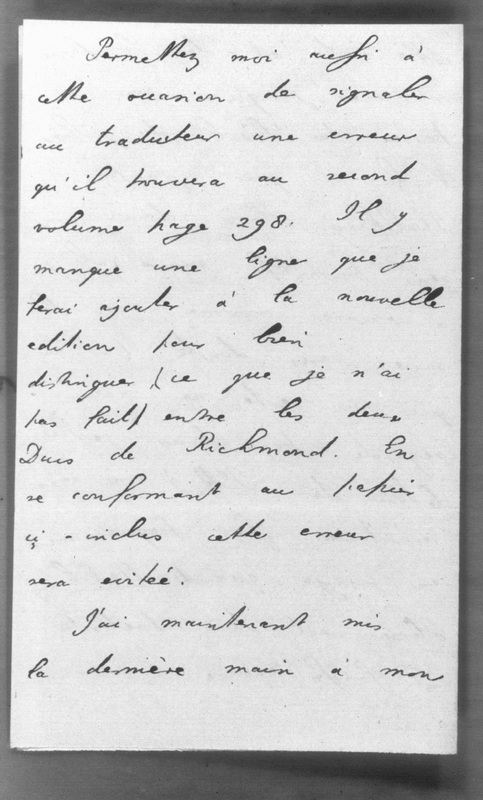 Permettez moi aussi à
cette occasion de signaler
au traducteur une erreur
qu'il trouvera au second
volume page 298. Il y
manque une ligne que je
ferai ajouter à la nouvelle
edition pour bien
distinguer (ce que je n'ai
pas fait) entre les deux
Ducs de Richmond. En
se conformant au papier
çi-inclus cette erreur
sera evitée.
J'ai maintenant mis
la dernière main à mon